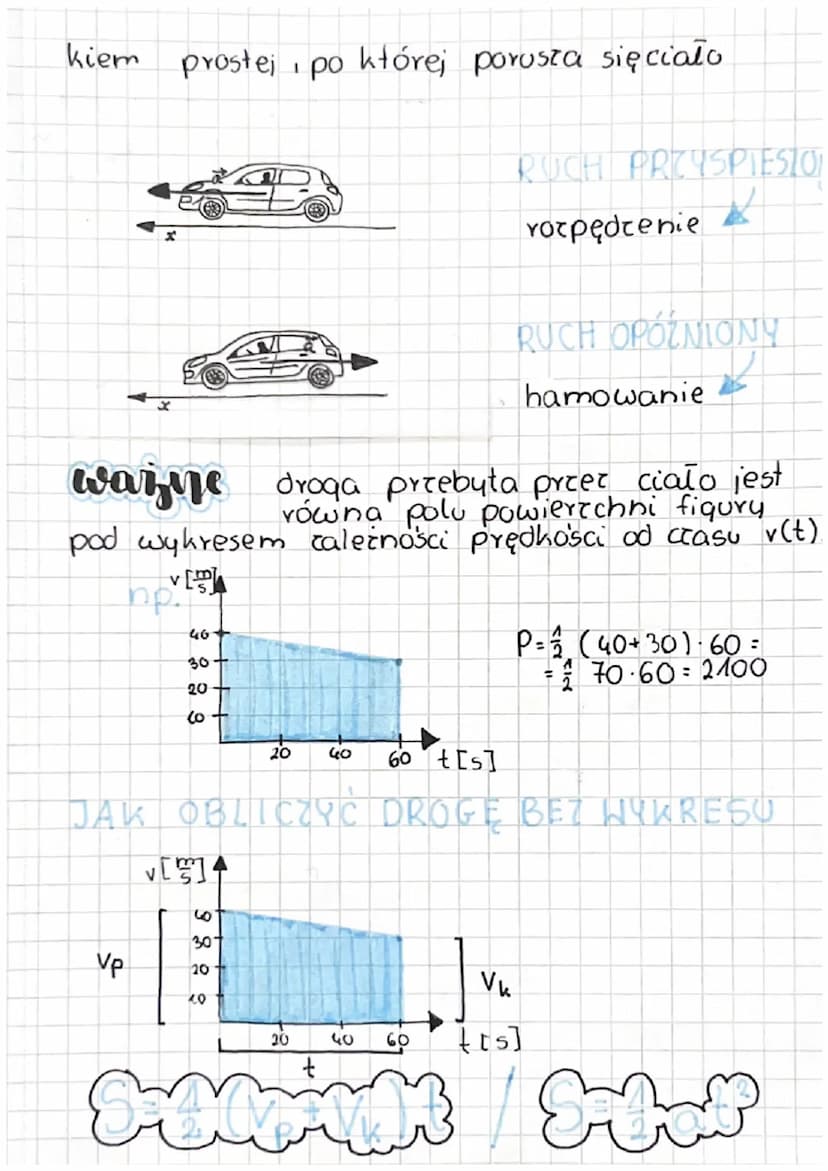 kiem prostej, po której porusza się ciało
a
x
RUCH PRZYSPIESZO
rozpędzenie
a
x
RUCH OPÓŹNIONY
hamowanie
ważne droga przebyta przez ciało jest
równa polu powierzchni figury
pod wykresem zależności prędkości od czasu v(t)
np.
v [m/s]
40
30
20
10
20 40 60 t[s]
P = 1/2 (40+30)·60 =
= 1/2 70·60 = 2100
JAK OBLICZYĆ DROGĘ BEZ WYKRESU
v [m/s]
40
30
20
10
Vp
Vk
20 40 60 t[s]
t
S = 1/2 (Vp + Vk) t / S = 1/2 at²